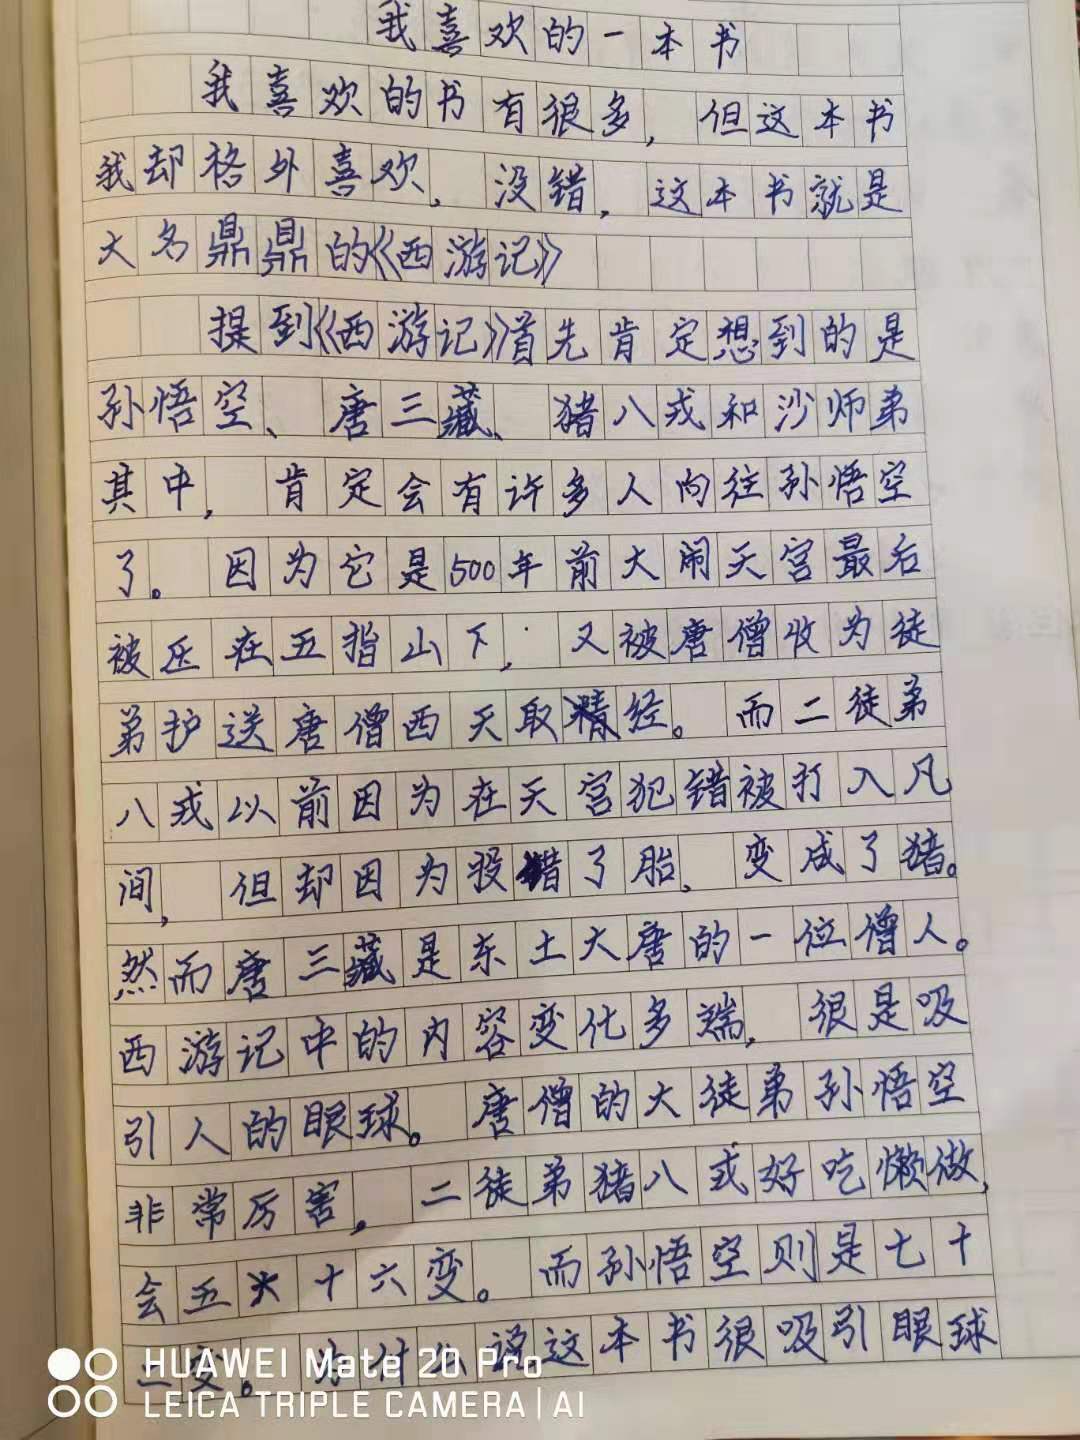 我喜欢的一本书
我喜欢的书有很多，但这本书
我却格外喜欢，没错，这本书就是
大名鼎鼎的《西游记》
提到《西游记》首先肯定想到的是
孙悟空、唐三藏、猪八戎和沙师弟
其中，肯定会有许多人向往孙悟空
了。因为它是500年前大闹天宫最后
被压在五指山下，又被唐僧收为徒
弟护送唐僧西天取精经。而二徒弟
八戎以前因为在天宫犯错被打入凡
间，但却因为投错了胎，变成了猪。
然而唐三藏是东土大唐的一位僧人。
西游记中的内容变化多端，很是吸
引人的眼球。唐僧的大徒弟孙悟空
非常厉害，二徒弟猪八戎好吃懒做，
会五十六变。而孙悟空则是七十
二变。为什么说这本书很吸引眼球
HUAWEI Mate 20 Pro
LEICA TRIPLE CAMERA | AI